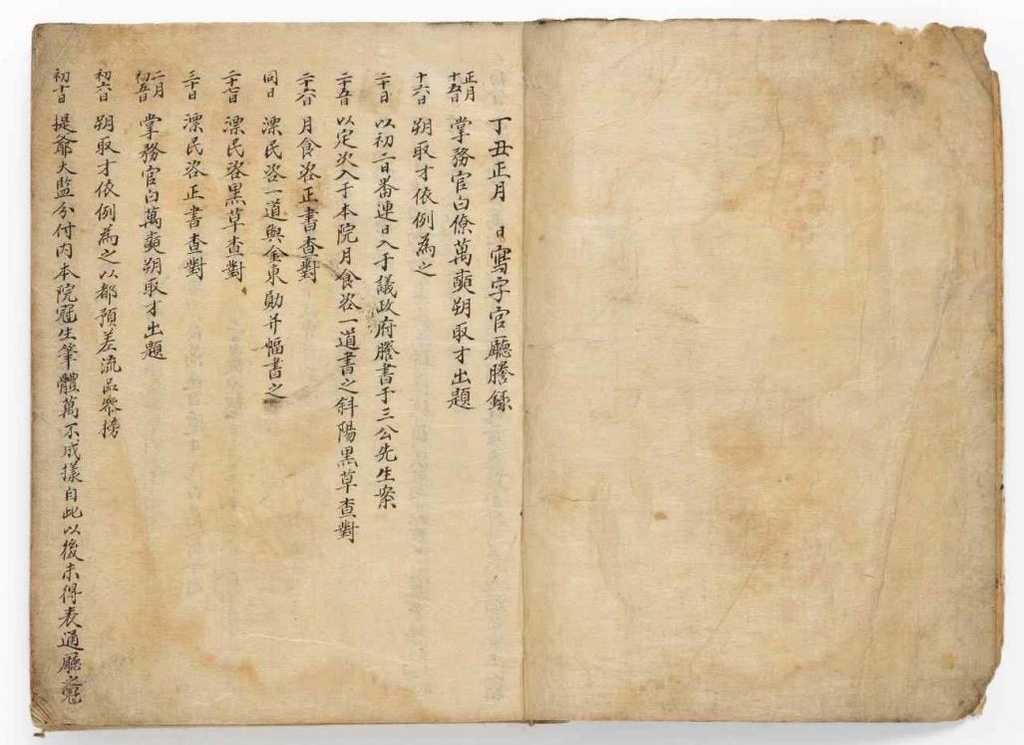 丁丑正月 日寫字官廳謄錄
正月十五日 掌務官白僚萬奭朔取才出題
十六日 朔取才依例為之
二十日 以初二日番連日入于議政府謄書于三公先生案
二十五日 以定次入于本院月食咨一道書之斜陽黑草查對
二十六日 月食咨正書查對
同日 漂民咨一道與金東勛并幅書之
二十七日 漂民咨黑草查對
三十日 漂民咨正書查對
二月初五日 掌務官白萬奭朔取才出題
初六日 朔取才依例為之以都預差流品參榜
初十日 提爺大監分付內本院冠生筆體萬不成樣自此以後未得表通廳之冠